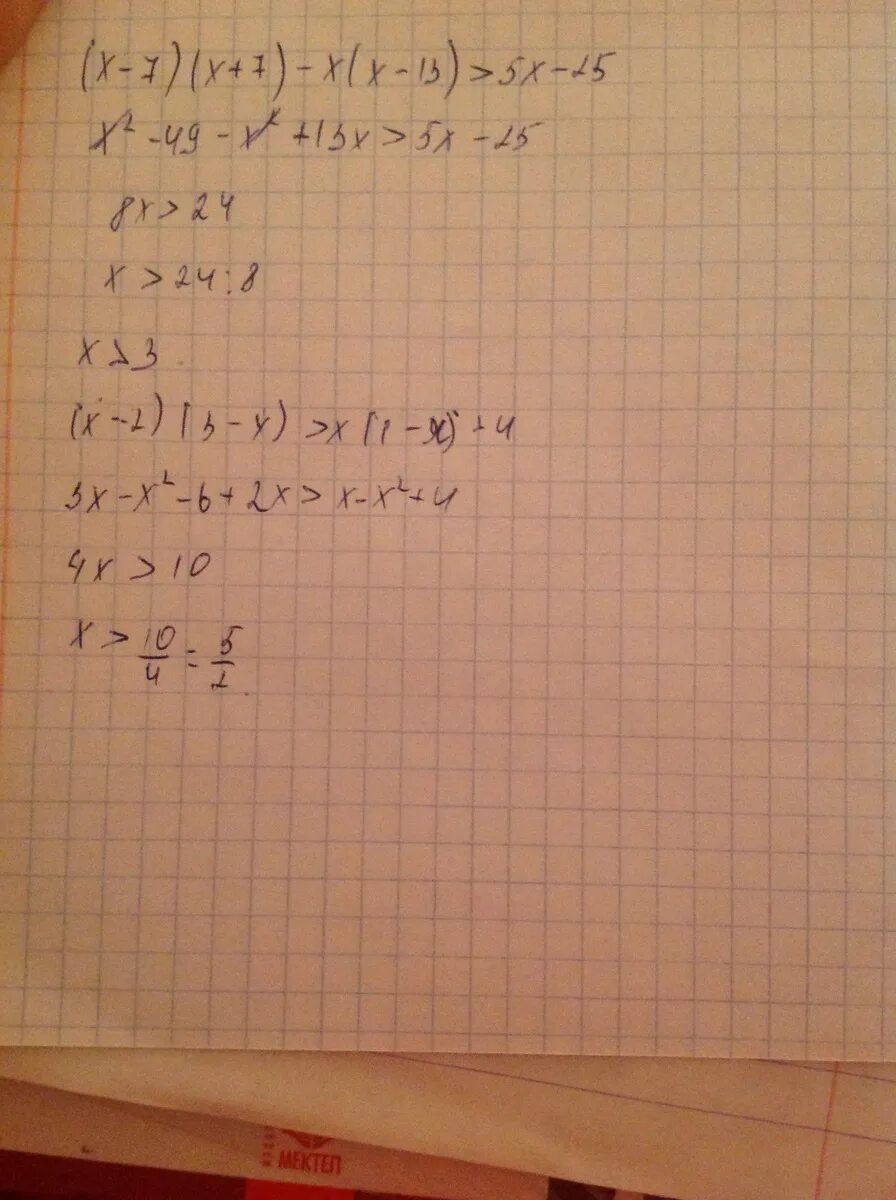 (x-7)(x+7)-x(x-13)>5x-25
x²-49-x²+13x>5x-25
8x>24
x>24:8
x>3.
(x-2)(3-x)>x(1-x)+4
3x-x²-6+2x>x-x²+4
4x>10
x>10/4=5/2.
МЕКТЕП